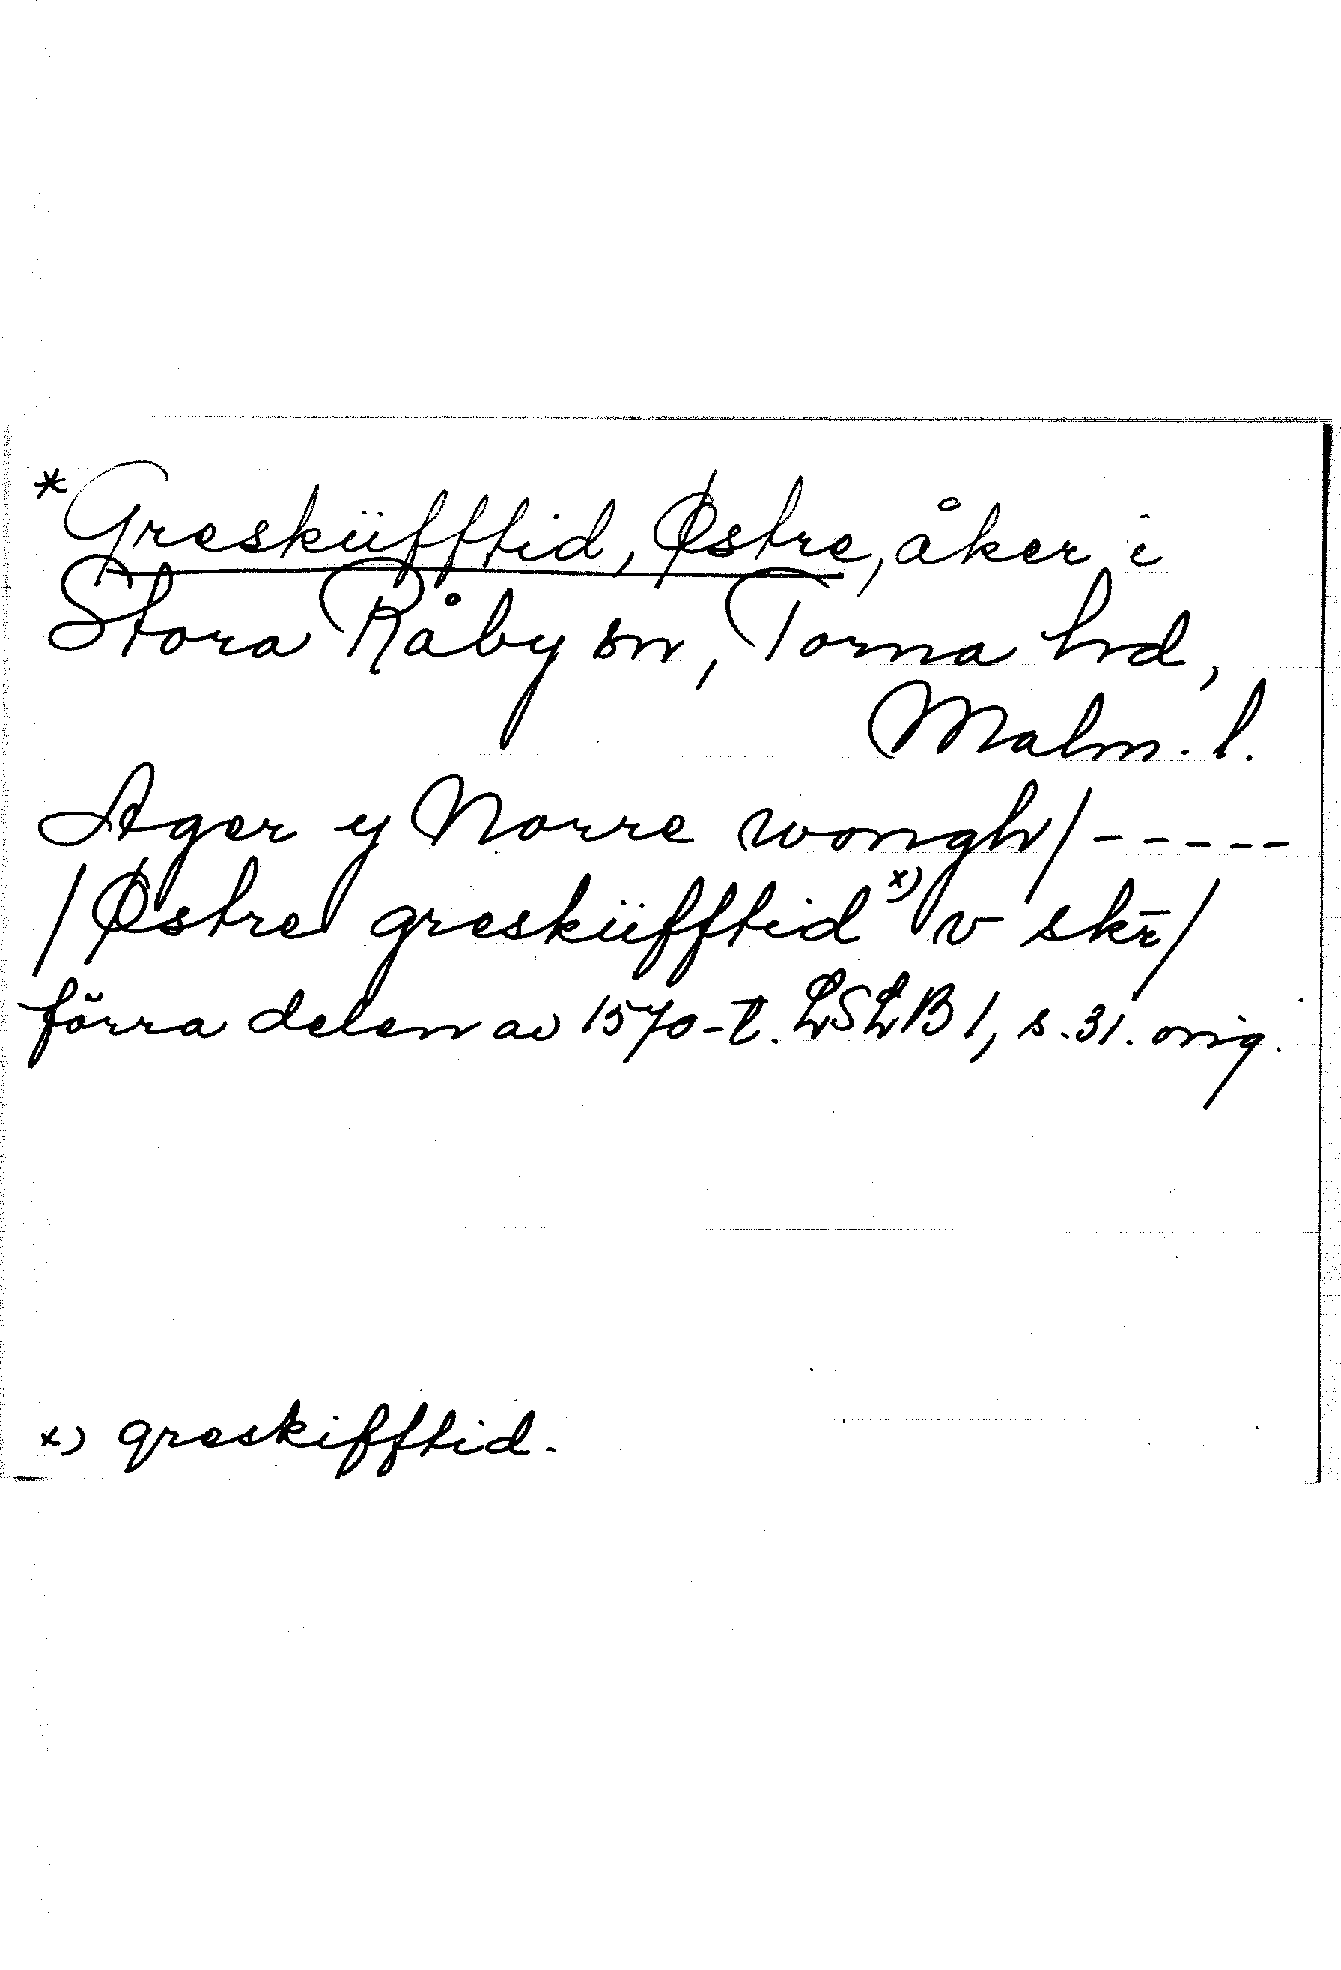 *Gresküfftid, Østre, åker i
Stora Råby sn, Torna hd,
Malm. l.
Ager y Norre wongh/-----
/Østre gresküfftid x) v skr̄/
förra delen av 1570-t. LSLB 1, s. 31. orig.
x) greskifftid.